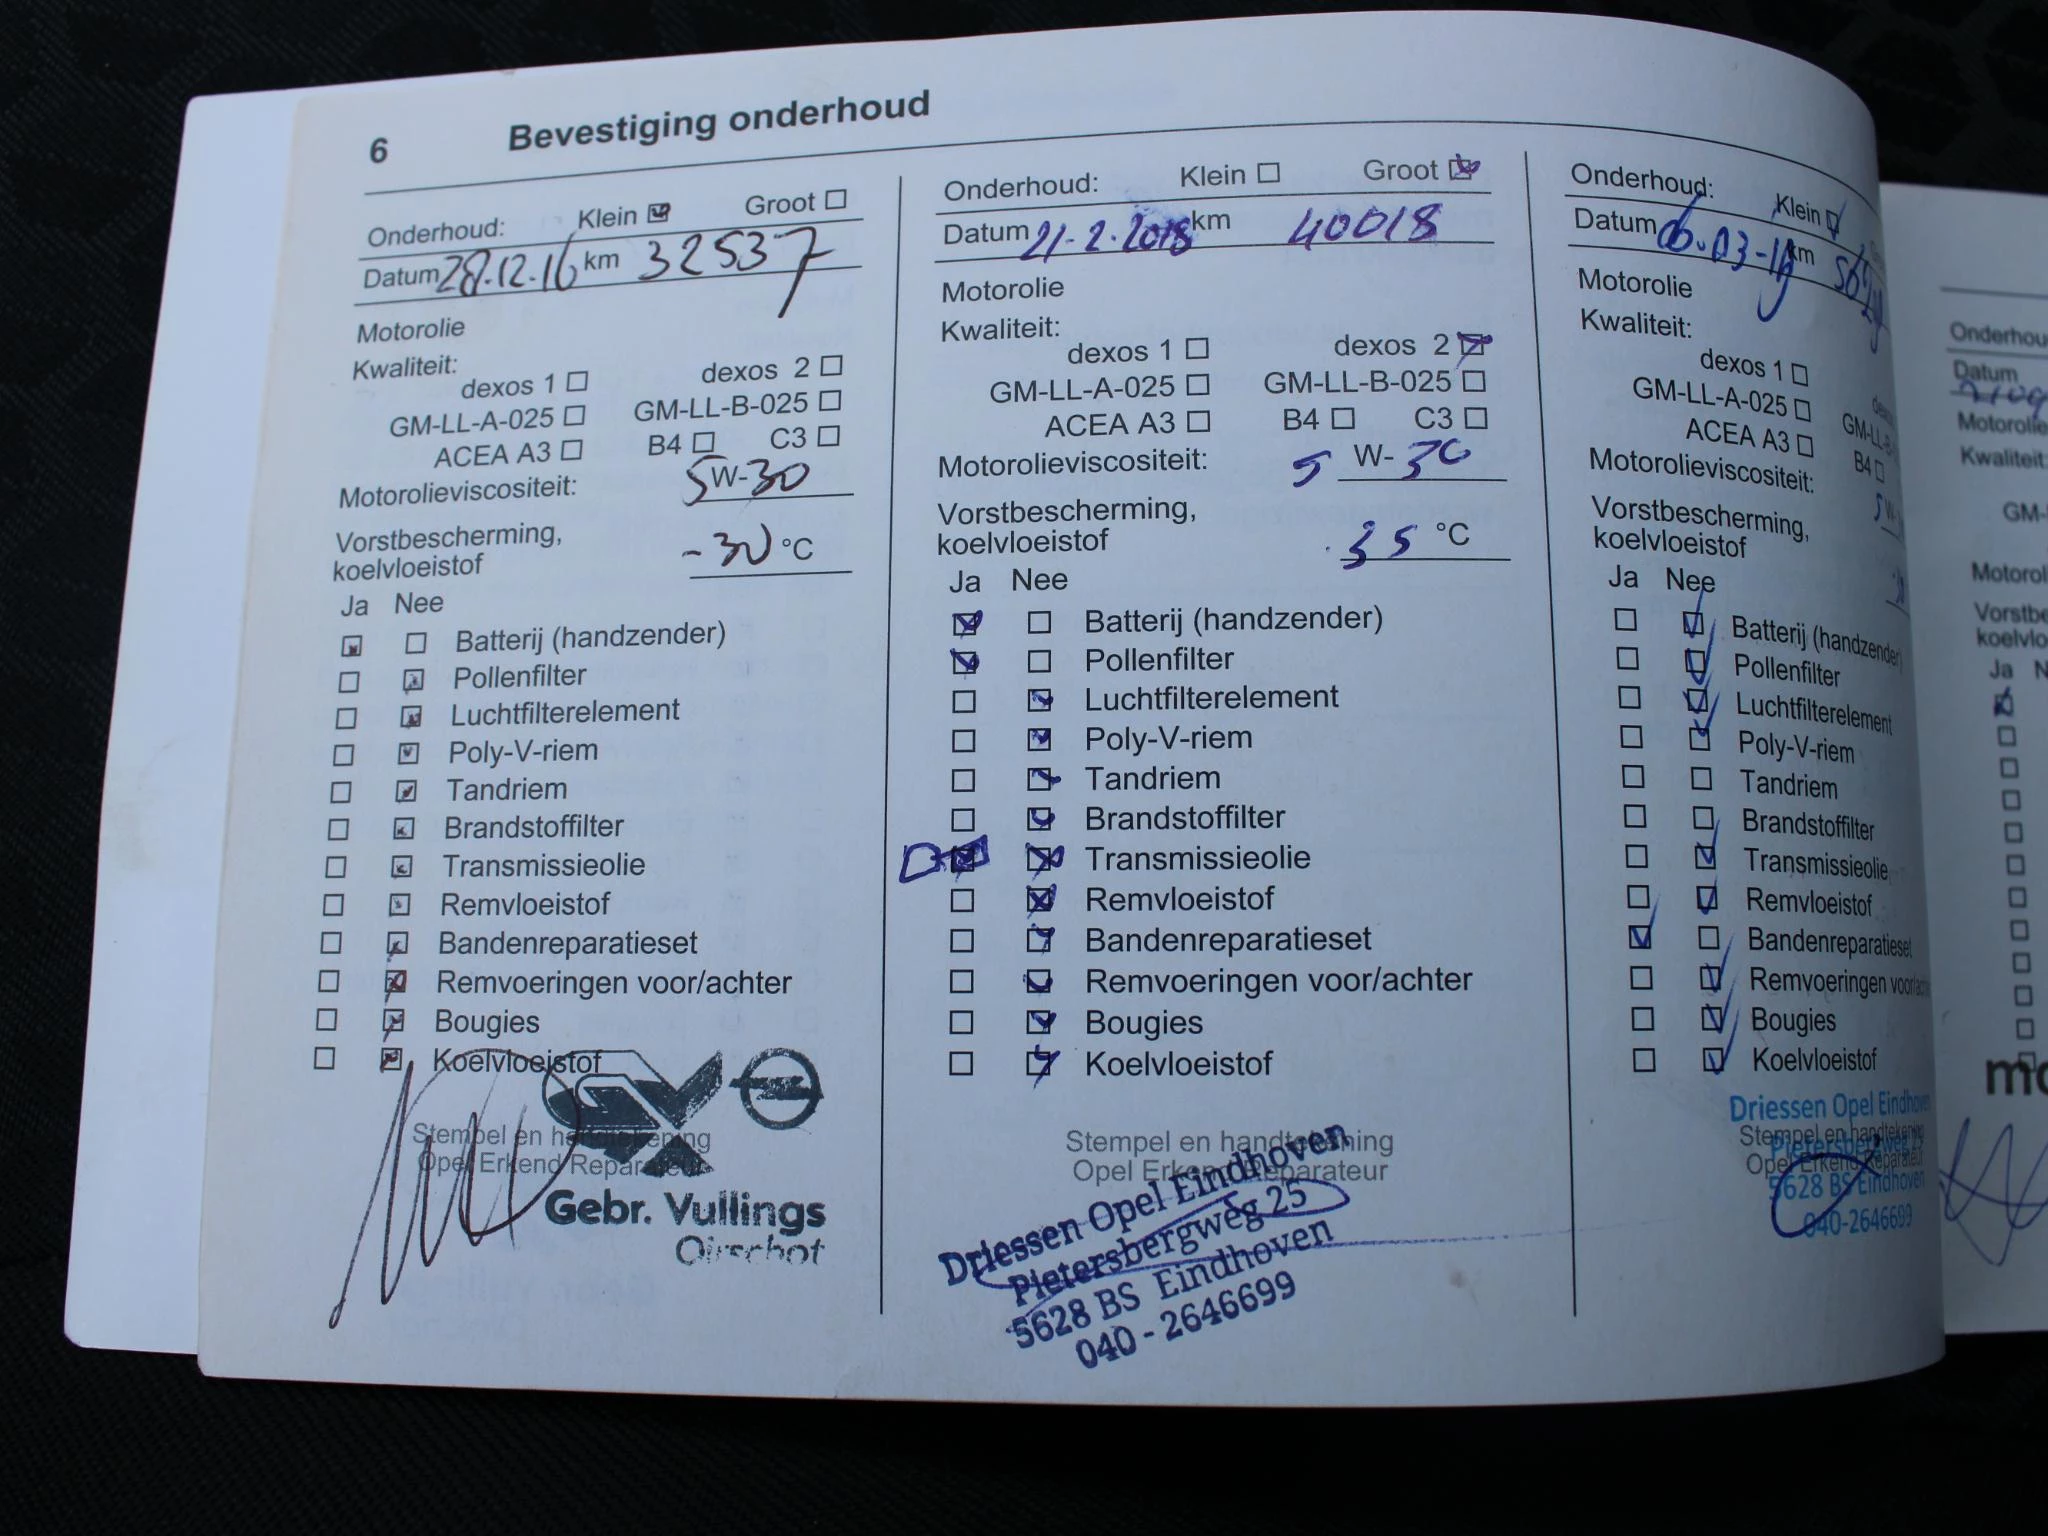 6 Bevestiging onderhoud
Onderhoud: Klein Groot
Datum 28.12.16 km 32537
Motorolie
Kwaliteit:
dexos 1 dexos 2
GM-LL-A-025 GM-LL-B-025
ACEA A3 B4 C3
Motorolieviscositeit: 5W-30
Vorstbescherming,
koelvloeistof -30 °C
Ja Nee
Batterij (handzender)
Pollenfilter
Luchtfilterelement
Poly-V-riem
Tandriem
Brandstoffilter
Transmissieolie
Remvloeistof
Bandenreparatieset
Remvoeringen voor/achter
Bougies
Koelvloeistof
Stempel en handtekening
Opel Erkend Reparateur
Gebr. Vullings
Oirschot
Onderhoud: Klein Groot
Datum 21-2-2018 km 40018
Motorolie
Kwaliteit:
dexos 1 dexos 2
GM-LL-A-025 GM-LL-B-025
ACEA A3 B4 C3
Motorolieviscositeit: 5 W-30
Vorstbescherming,
koelvloeistof 35 °C
Ja Nee
Batterij (handzender)
Pollenfilter
Luchtfilterelement
Poly-V-riem
Tandriem
Brandstoffilter
Transmissieolie
Remvloeistof
Bandenreparatieset
Remvoeringen voor/achter
Bougies
Koelvloeistof
Stempel en handtekening
Opel Erkend Reparateur
Driessen Opel Eindhoven
Pietersbergweg 25
5628 BS Eindhoven
040 - 2646699
Onderhoud: Klein
Datum km
Motorolie
Kwaliteit:
dexos 1
GM-LL-A-025 GM-LL-B
ACEA A3 B4
Motorolieviscositeit: 5 W-
Vorstbescherming,
koelvloeistof
Ja Nee
Batterij (handzender)
Pollenfilter
Luchtfilterelement
Poly-V-riem
Tandriem
Brandstoffilter
Transmissieolie
Remvloeistof
Bandenreparatieset
Remvoeringen voor/ach
Bougies
Koelvloeistof
Driessen Opel Eindhoven
Stempel en handtekening
Pietersbergweg 25
Opel Erkend Reparateur
5628 BS Eindhoven
040-2646699
Onderhou
Datum
Motorolie
Kwaliteit
GM-
Motorol
Vorstbe
koelvlo
Ja N